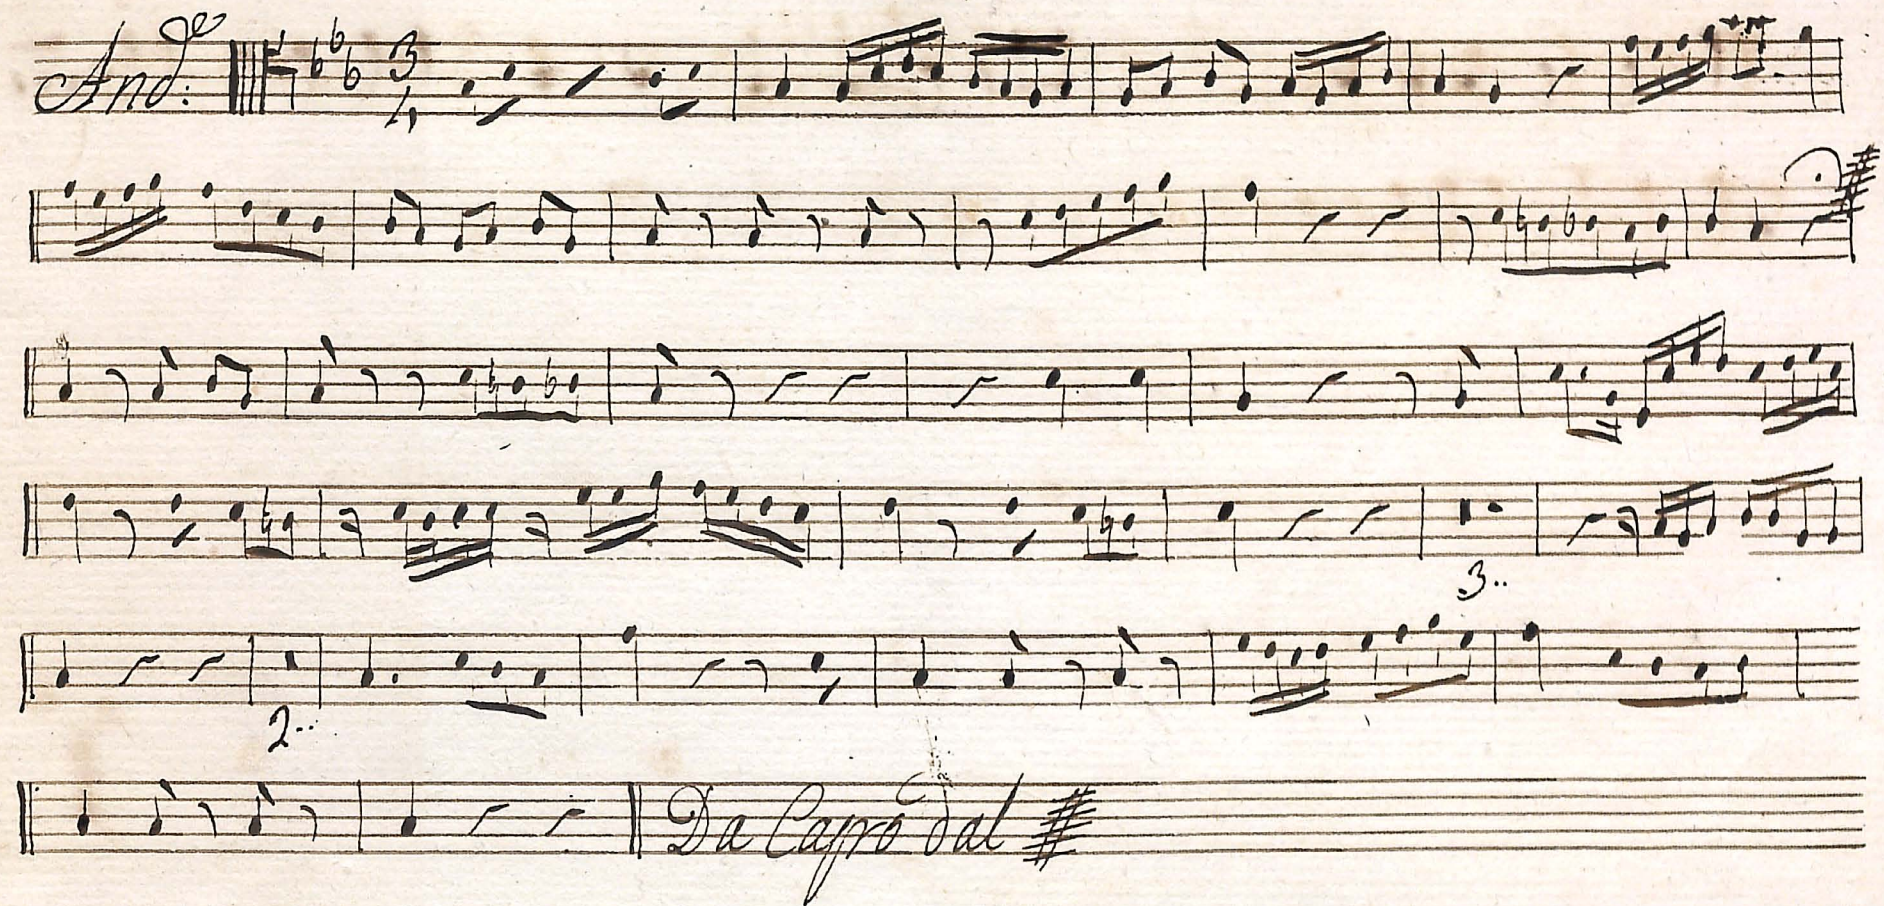 And.e
3
4
3..
2..
Da Capo dal